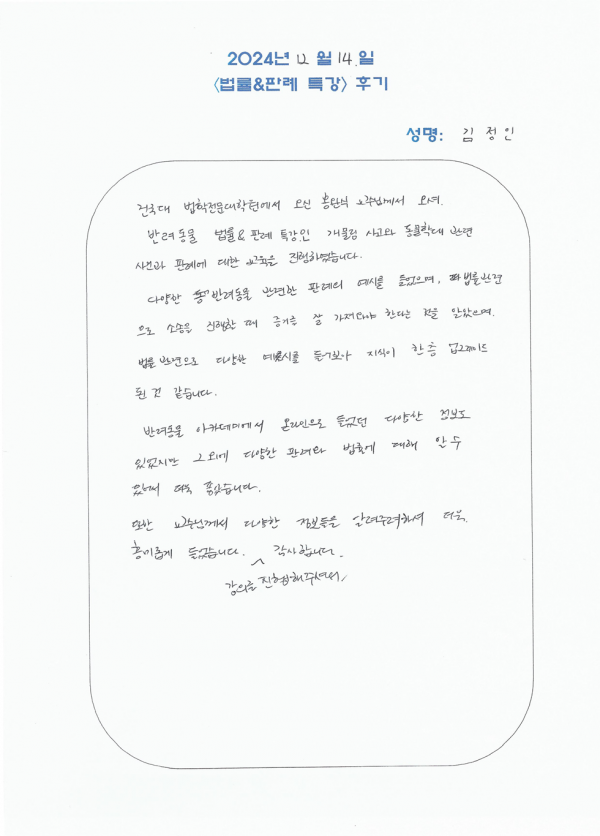 2024년 12월 14일
<법률&판례 특강> 후기
성명: 김정인
건국대 법학전문대학원에서 오신 홍완식 교수님께서 오셔.
반려동물 법률&판례 특강인 개물림 사고와 동물학대 관련
사건과 판례에 대한 교육을 진행하였습니다.
다양한 반려동물 관련한 판례의 예시를 들었으며, 법률관련
으로 소송을 진행할 때 증거를 잘 가져와야 한다는 것을 알았으며.
법률 관련으로 다양한 예시를 들어보아 지식이 한층 업그레이드
된 것 같습니다.
반려동물 아카데미에서 온라인으로 들었던 다양한 정보도
있었지만 그 외에 다양한 판례와 법률에 대해 알 수
있어서 더욱 좋았습니다.
또한 교수님께서 다양한 정보들을 알려주려하셔 더욱.
흥미롭게 들었습니다. 강의를 진행해주셔서 감사합니다.